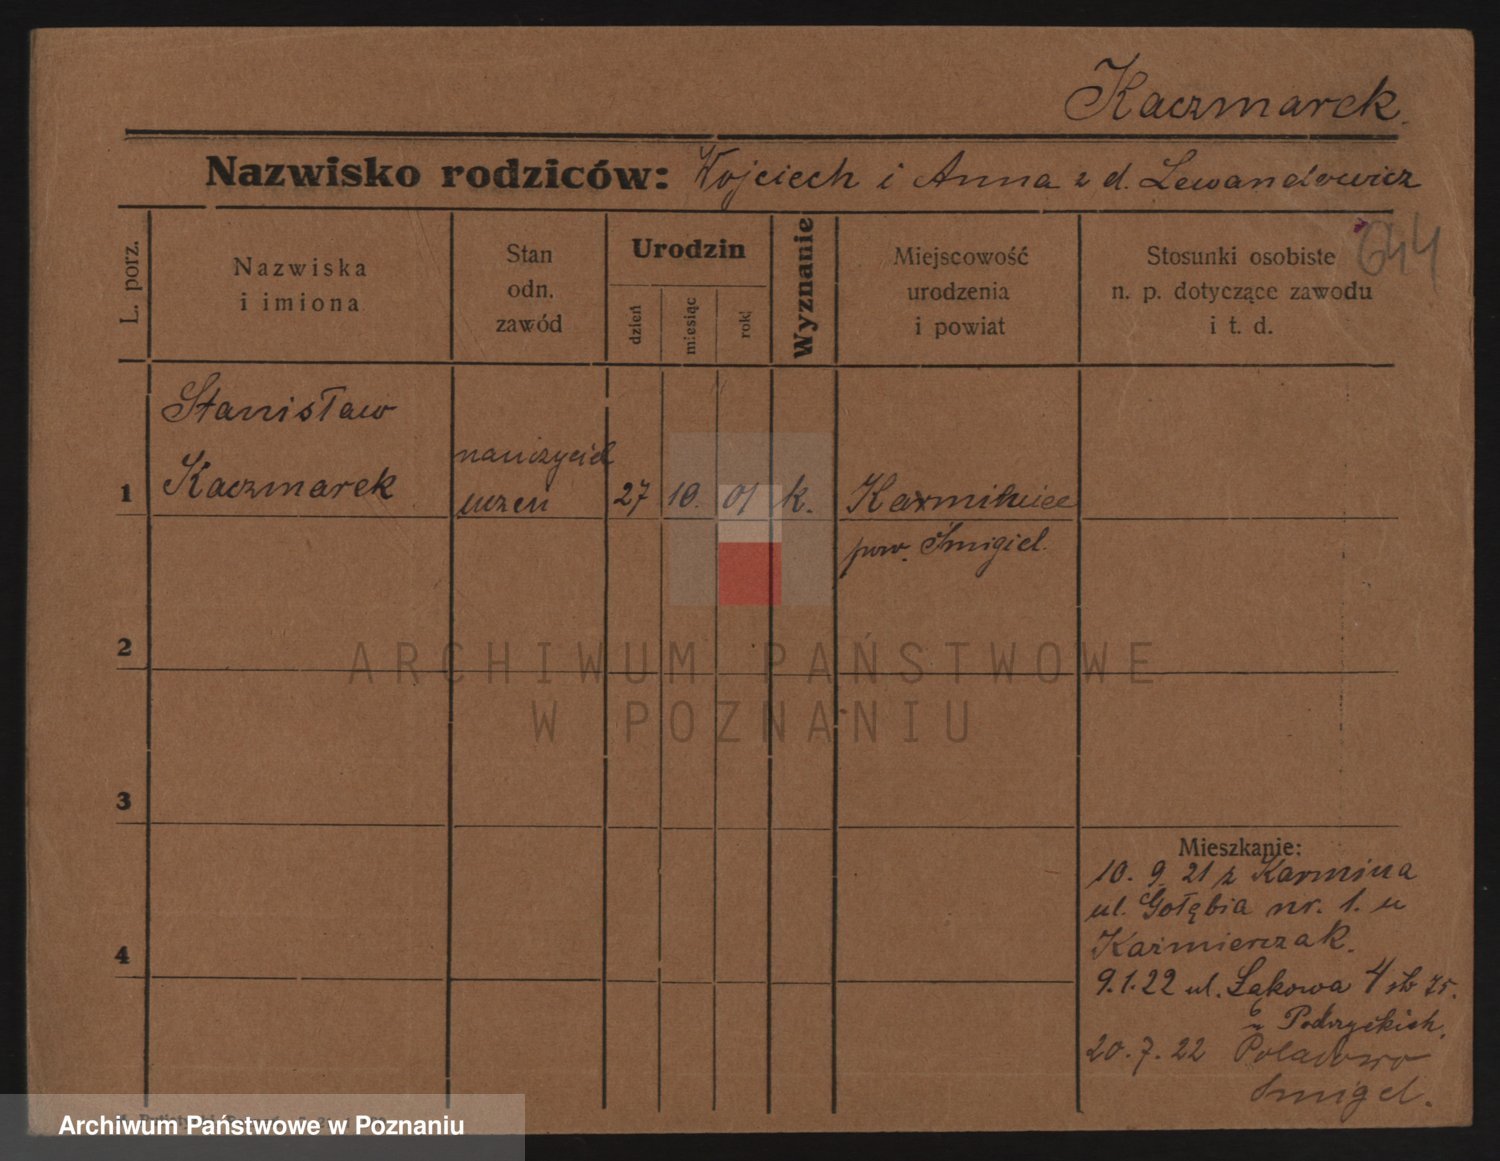 Kaczmarek.
Nazwisko rodziców: Wojciech i Anna z d. Lewandowicz
644
L. porz.
Nazwiska
i imiona
Stan
odn.
zawód
Urodzin
dzień
miesiąc
rok
Wyznanie
Miejscowość
urodzenia
i powiat
Stosunki osobiste
n. p. dotyczące zawodu
i t. d.
Stanisław
Kaczmarek
nauczyciel
uczeń
1
27
10.
01
k.
pow. Śmigiel.
2
3
4
Mieszkanie:
10. 9. 21 z Karmina
ul. Gołębia nr. 1. u
Kaźmierczak.
9.1.22 ul. Łąkowa 4
u
20.7.22
Śmigel.
ARCHIWUM PAŃSTWOWE
W POZNANIU
Archiwum Państwowe w Poznaniu